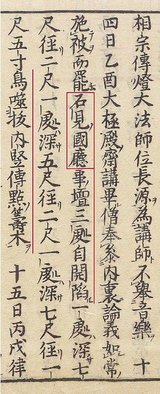 相宗傳燈大法師位長源為講師不擧音樂 十
四日乙酉大極殿齋講畢僧奉參內裏論義如常
施被而罷石見國廳事壇三處自開陷一處深七
尺徑二尺一處深五尺徑二尺一處深七尺徑一
尺五寸鳥噬拔內竪傳點籌木 十五日丙戌律